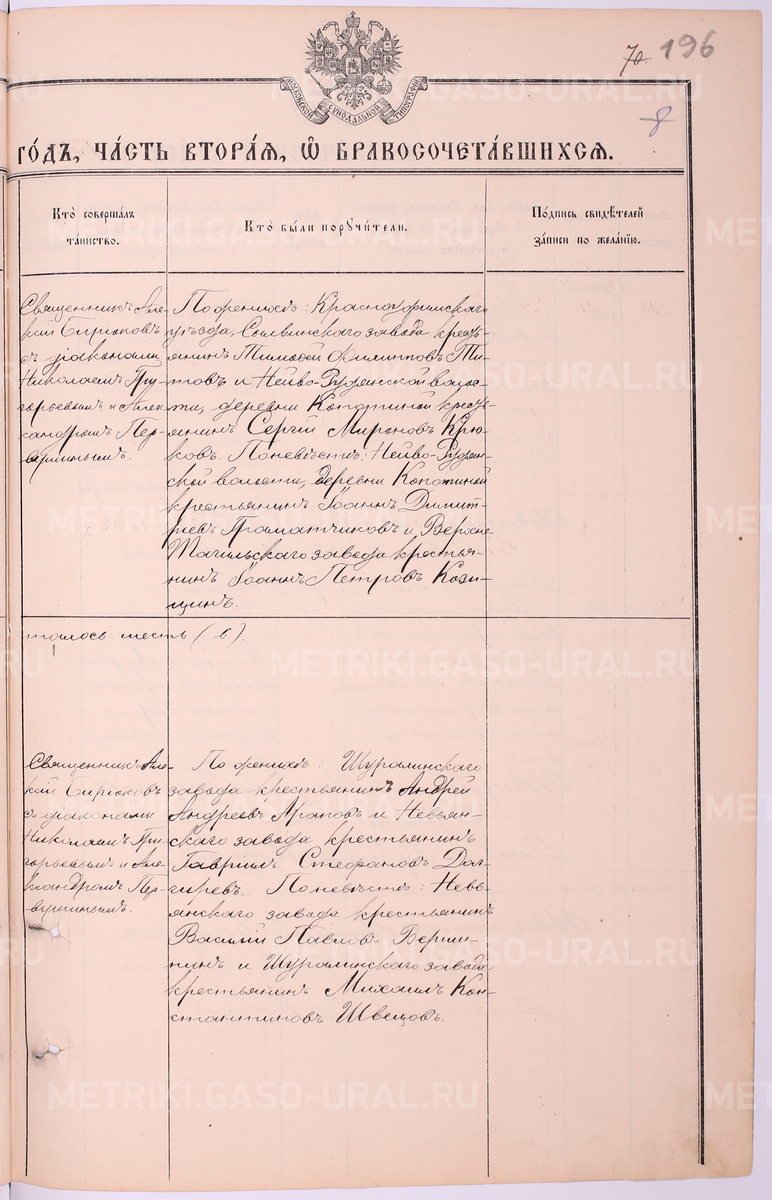 70. 196
8
МОСКОВСКОЙ СѴНОДАЛЬНОЙ ТИПОГРАФІИ
ГО́ДЪ, ЧА́СТЬ ВТОРА́Я, Ѽ БРАКОСОЧЕТА́ВШИХСЯ.
Кто̀ соверша́лъ
та́инство.
Кто̀ бы́ли порꙋчи́тели.
По́дпись свидѣ́телей
за́писи по жела́нїю.
Священникъ Але-
ксій Бирюковъ
съ діаконами
Николаемъ Гри-
горьевымъ и Алек-
сандромъ Пер-
вушинымъ.
По женихѣ: Красноуфимскаго
уѣзда, Сылвинскаго завода кресть-
янинъ Тимофей Филипповъ Ти-
товъ и Нейво-Рудянской волос-
ти, деревни Копотиной кресть-
янинъ Сергій Мироновъ Крю-
ковъ. По невѣстѣ: Нейво-Рудян-
ской волости, деревни Копотиной
крестьянинъ Іоаннъ Димит-
ріевъ Граматчиковъ и Верхне-
Тагильскаго завода крестья-
нинъ Іоаннъ Петровъ Кози-
цинъ.
талось шесть (6).
Священникъ Але-
ксій Бирюковъ
съ діаконами
Николаемъ Гри-
горьевымъ и Але-
ксандромъ Пер-
вушинымъ.
По женихѣ: Шуралинскаго
завода крестьянинъ Андрей
Андреевъ Араповъ и Невьян-
скаго завода крестьянинъ
Гавріилъ Стефановъ Дол-
гиревъ. По невѣстѣ: Невь-
янскаго завода крестьянинъ
Василій Павловъ Верши-
нинъ и Шуралинскаго завода
крестьянинъ Михаилъ Кон-
стантиновъ Швецовъ.
METRIKI.GASO-URAL.RU